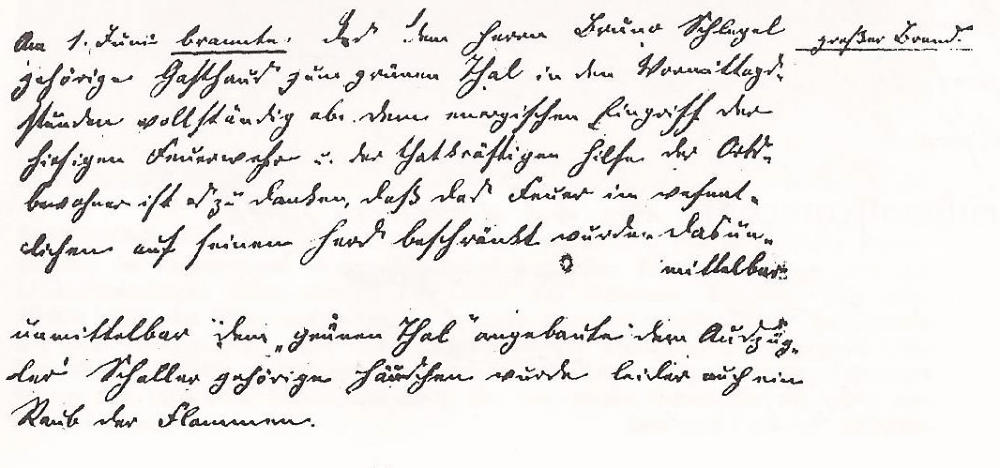 Am 1. Juni brannte. das dem Herrn Bruno Schlegel
großer Brand.
gehörige Gasthaus zum grünen Thal in den Vormittags-
stunden vollständig ab. dem energischen Eingriff der
hiesigen Feuerwehr u. der thatkräftigen Hilfe der Orts-
bewohner ist es zu danken, daß das Feuer im wesent-
lichen auf seinen Herd beschränkt wurde. das un-
mittelbar
unmittelbar dem „grünen Thal" angebaute dem Auszüg-
ler Schaller gehörige Häuschen wurde leider auch ein
Raub der Flammen.